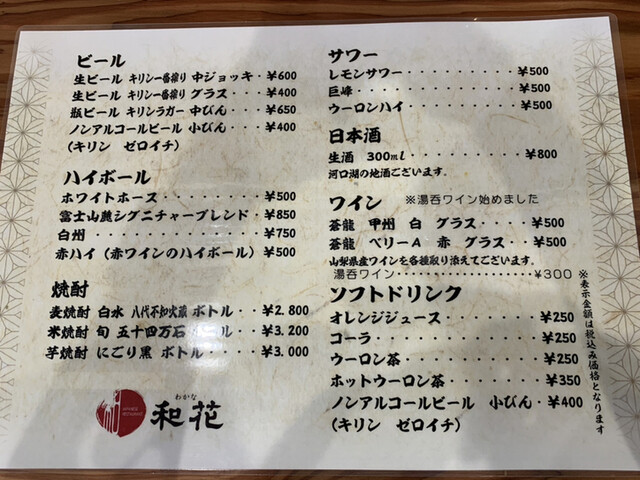 ビール
生ビール キリン一番搾り 中ジョッキ・¥600
生ビール キリン一番搾り グラス・・・¥400
瓶ビール キリンラガー 中びん・・・¥650
ノンアルコールビール 小びん・・・¥400
(キリン ゼロイチ)
ハイボール
ホワイトホース・・・・・・・・・¥500
富士山麓シグニチャーブレンド・¥850
白州・・・・・・・・・・・・・・¥750
赤ハイ(赤ワインのハイボール)¥500
焼酎
麦焼酎 白水 八代不知火蔵 ボトル・・¥2.800
米焼酎 旬 五十四万石 ボトル・・・¥3.200
芋焼酎 にごり黒 ボトル・・・・¥3.000
わかな
和花
サワー
レモンサワー・・・・・・・・・¥500
巨峰・・・・・・・・・・・・・¥500
ウーロンハイ・・・・・・・・・¥500
日本酒
生酒 300ml・・・・・・・・・¥800
河口湖の地酒ございます。
ワイン ※湯呑ワイン始めました
蒼龍 甲州 白 グラス・・・・¥500
蒼龍 ベリーA 赤 グラス・・¥500
山梨県産ワインを各種取り添えてございます。
湯呑ワイン・・・・・・・・・・・・・・・・¥300
ソフトドリンク
オレンジジュース・・・・・・・・¥250
コーラ・・・・・・・・・・・・・¥250
ウーロン茶・・・・・・・・・・・¥250
ホットウーロン茶・・・・・・・・¥350
ノンアルコールビール 小びん・¥400
(キリン ゼロイチ)
※表示金額は税込み価格となります